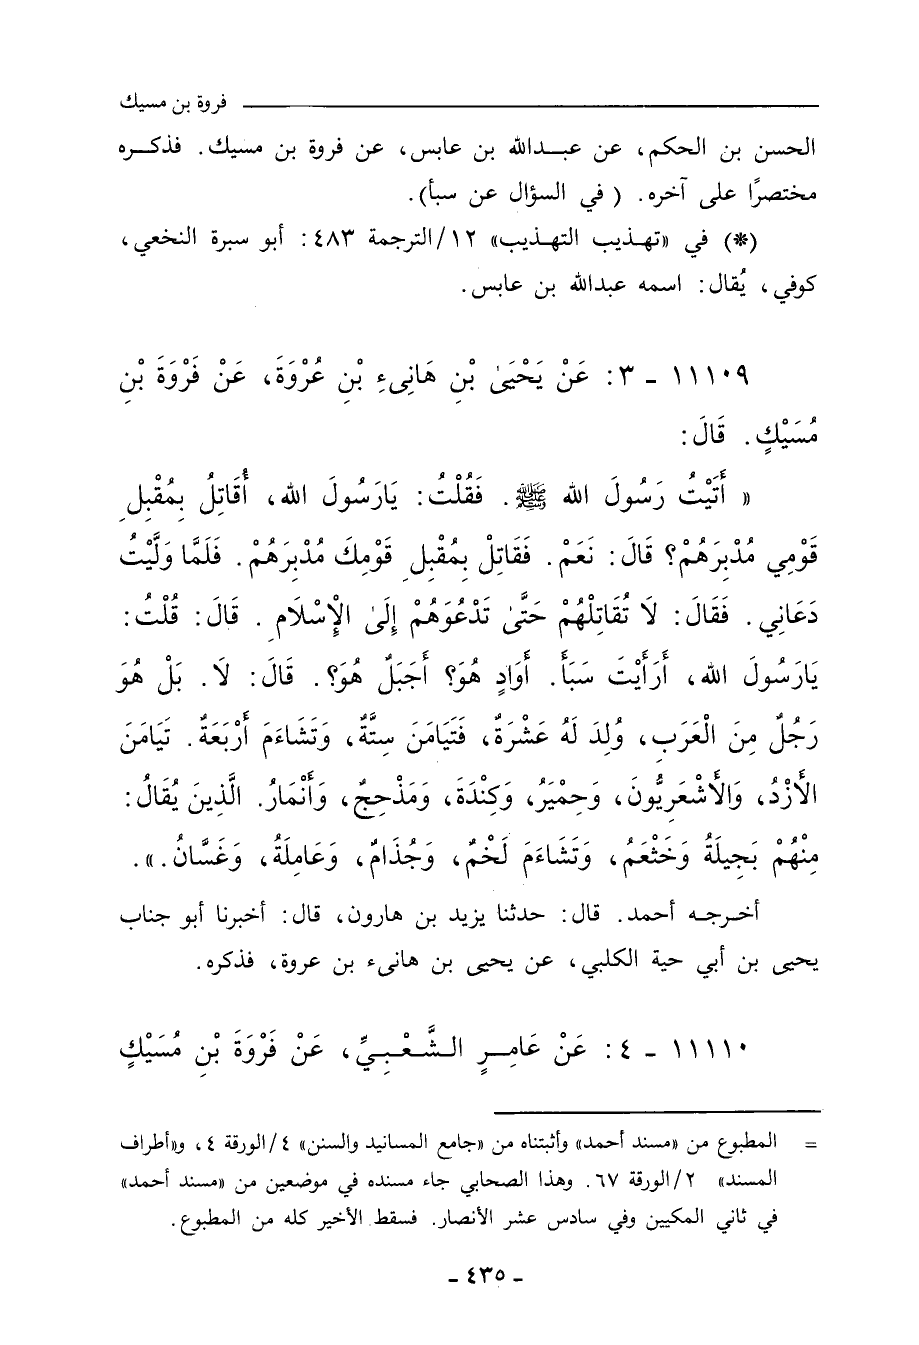 فروة بن مسيك
الحسن بن الحكم، عن عبدالله بن عابس، عن فروة بن مسيك. فذكره
مختصرًا على آخره. ( في السؤال عن سبأ).
(*) في «تهذيب التهذيب» ١٢/الترجمة ٤٨٣: أبو سبرة النخعي،
كوفي، يُقال: اسمه عبدالله بن عابس.
١١١٠٩ - ٣: عَنْ يَحْيَىٰ بْنِ هَانِىءِ بْنِ عُرْوَةَ، عَنْ فَرْوَةَ بْنِ
مُسَيْكٍ. قَالَ:
« أَتَيْتُ رَسُولَ الله ﷺ. فَقُلْتُ: يَارَسُولَ الله، أُقَاتِلُ بِمُقْبِلِ
قَوْمِي مُدْبِرَهُمْ؟ قَالَ: نَعَمْ. فَقَاتِلْ بِمُقْبِلِ قَوْمِكَ مُدْبِرَهُمْ. فَلَمَّا وَلَّيْتُ
دَعَانِي. فَقَالَ: لَا تُقَاتِلْهُمْ حَتَّىٰ تَدْعُوَهُمْ إِلَىٰ الْإِسْلَامِ. قَالَ: قُلْتُ:
يَارَسُولَ الله، أَرَأَيْتَ سَبَأَ. أَوَادٍ هُوَ؟ أَجَبَلٌ هُوَ؟. قَالَ: لَا. بَلْ هُوَ
رَجُلٌ مِنَ الْعَرَبِ، وُلِدَ لَهُ عَشْرَةٌ، فَتَيَامَنَ سِتَّةٌ، وَتَشَاءَمَ أَرْبَعَةٌ. تَيَامَنَ
الأَزْدُ، وَالأَشْعَرِيُّونَ، وَحِمْيَرُ، وَكِنْدَةَ، وَمَذْحِجٌ، وَأَنْمَارُ. الَّذِينَ يُقَالُ:
مِنْهُمْ بَجِيلَةُ وَخَثْعَمُ، وَتَشَاءَمَ لَخْمٌ، وَجُذَامٌ، وَعَامِلَةُ، وَغَسَّانُ.».
أخرجه أحمد. قال: حدثنا يزيد بن هارون، قال: أخبرنا أبو جناب
يحيى بن أبي حية الكلبي، عن يحيى بن هانىء بن عروة، فذكره.
١١١١٠ - ٤: عَنْ عَامِرٍ الشَّعْبِيِّ، عَنْ فَرْوَةَ بْنِ مُسَيْكٍ
= المطبوع من «مسند أحمد» وأثبتناه من «جامع المسانيد والسنن» ٤/الورقة ٤، و«أطراف
المسند» ٢/الورقة ٦٧. وهذا الصحابي جاء مسنده في موضعين من «مسند أحمد»
في ثاني المكيين وفي سادس عشر الأنصار. فسقط الأخير كله من المطبوع.
- ٤٣٥ -